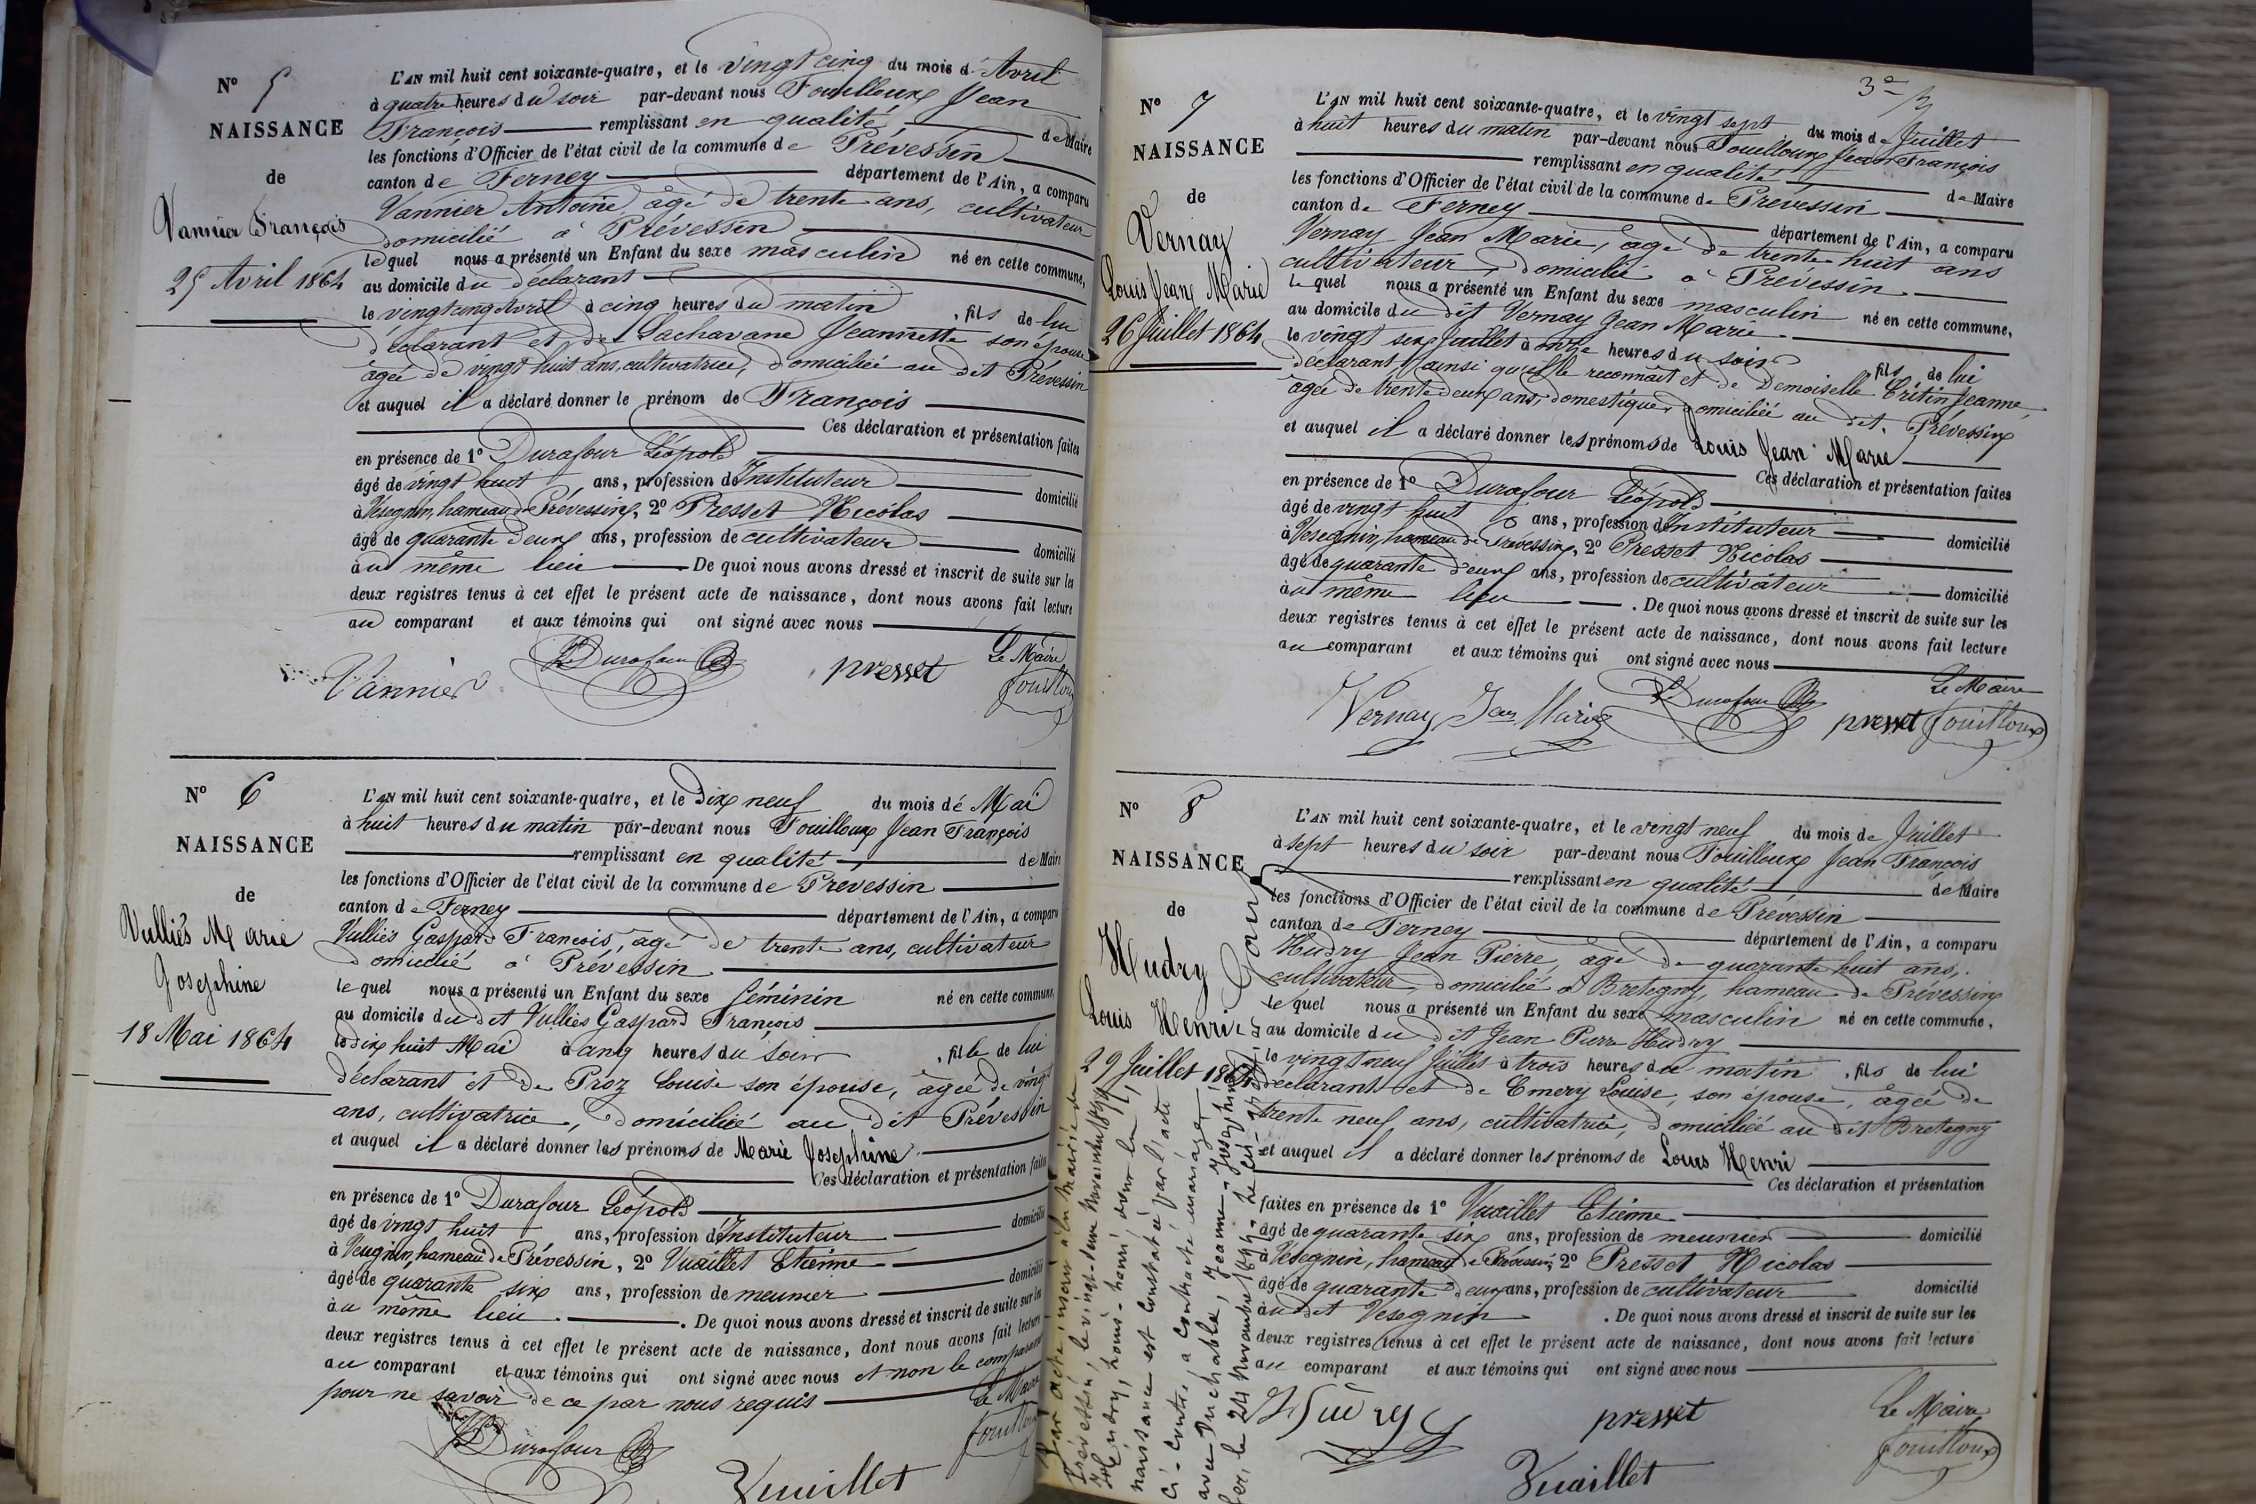 N° 5
NAISSANCE
de
Vannier François
25 Avril 1864
L'AN mil huit cent soixante-quatre, et le vingt cinq du mois d'Avril
à quatre heures du soir par-devant nous Fouilloux Jean
François remplissant en qualité de Maire
les fonctions d'Officier de l'état civil de la commune de Prévessin
canton de Ferney département de l'Ain, a comparu
Vannier Antoine âgé de trente ans, cultivateur
domicilié à Prévessin
lequel nous a présenté un Enfant du sexe masculin né en cette commune,
au domicile du déclarant
le vingt cinq Avril à cinq heures du matin, fils de lui
déclarant et de Lachavane Jeannette son épouse
âgée de vingt huit ans, cultivatrice, domiciliée au dit Prévessin
et auquel il a déclaré donner le prénom de François
Ces déclaration et présentation faites
en présence de 1° Durafour Léopold
âgé de vingt huit ans, profession d'Instituteur domicilié
à Vésegnin, hameau de Prévessin, 2° Presset Nicolas
âgé de quarante deux ans, profession de cultivateur domicilié
au même lieu De quoi nous avons dressé et inscrit de suite sur les
deux registres tenus à cet effet le présent acte de naissance, dont nous avons fait lecture
au comparant et aux témoins qui ont signé avec nous
Le Maire
Vannier Durafour presset Fouilloux
N° 6
NAISSANCE
de
Vulliès Marie
Josephine
18 Mai 1864
L'AN mil huit cent soixante-quatre, et le dix neuf du mois de Mai
à huit heures du matin par-devant nous Fouilloux Jean François
remplissant en qualité de Maire
les fonctions d'Officier de l'état civil de la commune de Prévessin
canton de Ferney département de l'Ain, a comparu
Vulliès Gaspard François, âgé de trente ans, cultivateur
domicilié à Prévessin
lequel nous a présenté un Enfant du sexe féminin né en cette commune,
au domicile du dit Vulliès Gaspard François
le dix huit Mai à cinq heures du soir, fille de lui
déclarant et de Proz Louise son épouse, âgée de vingt
ans, cultivatrice, domiciliée au dit Prévessin
et auquel il a déclaré donner les prénoms de Marie Josephine
Ces déclaration et présentation faites
en présence de 1° Durafour Léopold
âgé de vingt huit ans, profession d'Instituteur domicilié
à Vésegnin, hameau de Prévessin, 2° Vuaillet Etienne
âgé de quarante six ans, profession de meunier domicilié
au même lieu. De quoi nous avons dressé et inscrit de suite sur les
deux registres tenus à cet effet le présent acte de naissance, dont nous avons fait lecture
au comparant et aux témoins qui ont signé avec nous et non le comparant
pour ne savoir de ce par nous requis
Le Maire
Durafour Vuaillet Fouilloux
3e
N° 7
NAISSANCE
de
Vernay
Louis Jean Marie
26 Juillet 1864
L'AN mil huit cent soixante-quatre, et le vingt sept du mois de Juillet
à huit heures du matin par-devant nous Fouilloux Jean François
remplissant en qualité de Maire
les fonctions d'Officier de l'état civil de la commune de Prévessin
canton de Ferney département de l'Ain, a comparu
Vernay Jean Marie, âgé de trente huit ans
cultivateur, domicilié à Prévessin
lequel nous a présenté un Enfant du sexe masculin né en cette commune,
au domicile du dit Vernay Jean Marie
le vingt six Juillet à onze heures du soir, fils de lui
déclarant, ainsi qu'il le reconnaît et de Demoiselle Critin Jeanne,
âgée de trente deux ans, domestique, domiciliée au dit. Prévessin
et auquel il a déclaré donner les prénoms de Louis Jean Marie
Ces déclaration et présentation faites
en présence de 1° Durafour Léopold
âgé de vingt huit ans, profession d'Instituteur domicilié
à Vésegnin, hameau de Prévessin, 2° Presset Nicolas
âgé de quarante deux ans, profession de cultivateur domicilié
au même lieu. De quoi nous avons dressé et inscrit de suite sur les
deux registres tenus à cet effet le présent acte de naissance, dont nous avons fait lecture
au comparant et aux témoins qui ont signé avec nous
Le Maire
Vernay Jean Marie Durafour presset Fouilloux
N° 8
NAISSANCE
de
Hudry
Louis Henri
29 Juillet 1864
L'AN mil huit cent soixante-quatre, et le vingt neuf du mois de Juillet
à sept heures du soir par-devant nous Fouilloux Jean François
remplissant en qualité de Maire
les fonctions d'Officier de l'état civil de la commune de Prévessin
canton de Ferney département de l'Ain, a comparu
Hudry Jean Pierre, âgé de quarante huit ans,
cultivateur, domicilié à Bretegny, hameau de Prévessin
lequel nous a présenté un Enfant du sexe masculin né en cette commune,
au domicile du dit Jean Pierre Hudry
le vingt neuf Juillet à trois heures du matin, fils de lui
déclarant et de Emery Louise, son épouse, âgée de
trente neuf ans, cultivatrice, domiciliée au dit Bretegny
et auquel il a déclaré donner les prénoms de Louis Henri
Ces déclaration et présentation
faites en présence de 1° Vuaillet Etienne
âgé de quarante six ans, profession de meunier domicilié
à Vésegnin, hameau de Prévessin, 2° Presset Nicolas
âgé de quarante deux ans, profession de cultivateur domicilié
au dit Vesegnin. De quoi nous avons dressé et inscrit de suite sur les
deux registres tenus à cet effet le présent acte de naissance, dont nous avons fait lecture
au comparant et aux témoins qui ont signé avec nous
Le Maire
Hudry presset Fouilloux
Vuaillet
Par acte, inscrit à la mairie de
Prévessin, le vingt-deux Novembre
Hudry, Louis-Henri, dont la
naissance est constatée par l'acte
ci-contre, a contracté mariage
avec Duchable, Jeanne-Josephine
le 24 Novembre